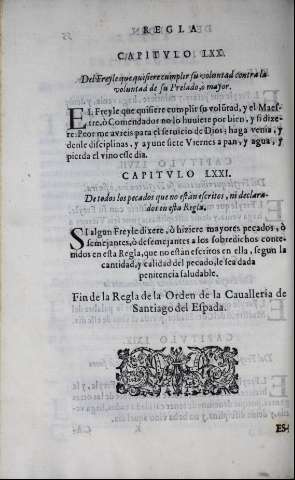 REGLA
CAPITVLO LXX.
Del Freyle que quisiere cumplir su voluntad contra la
voluntad de su Prelado, o mayor.
EL Freyle que quisiere cumplir su volũtad, y el Maes-
tre, ò Comendador no lo huuiere por bien, y si dize-
re: Peor me avreis para el seruicio de Dios; haga venia, y
denle disciplinas, y ayune siete Viernes a pan, y agua, y
pierda el vino esse dia.
CAPITVLO LXXI.
De todos los pecados que no están escritos, ni declara-
dos en esta Regla.
SI algun Freyle dixere, ò hiziere mayores pecados, ò
semejantes, ò desemejantes a los sobredichos conte-
nidos en esta Regla, que no están escritos en ella, segun la
cantidad, y calidad del pecado, le sea dada
penitencia saludable.
Fin de la Regla de la Orden de la Caualleria de
Santiago del Espada.
ES-